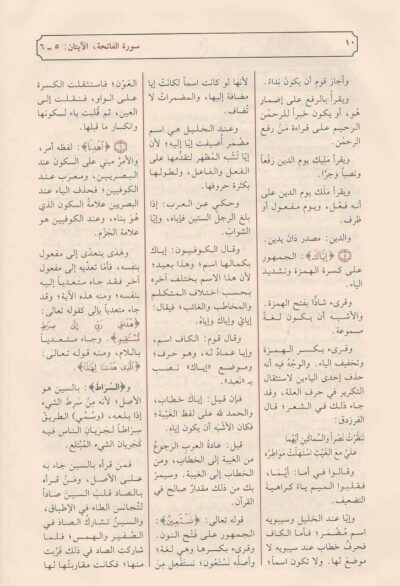 ١٠
سورة الفاتحة، الآيتان: ٥ ـ ٦
وأجاز قوم أن يكون نداءً.
ويقرأ بالرفع على إضمار
هُو، أو يكون خبراً للرحمن
الرحيم على قراءة مَنْ رفع
الرحمن.
ويقرأ مليك يوم الدين رفعاً
ونصباً وجرّاً.
ويقرأ مَلَك يوم الدين على
أنه فعْل، ويوم مفعول أو
ظرف.
والدين: مصدر دَانَ يدين.
﴿إِيَّاكَ﴾: الجمهور
على كسرة الهمزة وتشديد
الياء.
وقرىء شاذّاً بفتح الهمزة.
والأشبه أن يكون لغة
مسموعة.
وقرىء بكسر الهمزة
وتخفيف الياء. والوجْهُ فيه أنه
حذف إحدى الياءين لاستثقال
التكرير في حرف العلة، وقد
جاء ذلك في الشعر؛ قال
الفرزدق:
تَنَظَّرْتُ نَصْراً والسِّماكَينِ أَيْهُما
عَليَّ مِنَ الغَيْثِ اسْتَهَلَّتْ مَوَاطِرُه
وقالوا في أما: أَيْمَا،
فقلبوا الميم ياءً كراهية
التضعيف.
وإيّا عند الخليل وسيبويه
اسم مُضْمَر؛ فأما الكاف
فحرفُ خطاب عند سيبويه لا
موضعَ لها. ولا تكون اسماً؛
لأنها لو كانت اسماً لكانتْ إيّا
مضافة إليها، والمضمراتُ لا
تُضاف.
وعند الخليل هي اسم
مضمر أضيفت إيَّا إليه؛ لأن
إيّا تُشْبه المُظْهَر لتقدّمها على
الفعل والفاعل، ولطولها
بكثرة حروفها.
وحكي عن العرب: إذا
بلغ الرجل الستين فإياه، وإيَّا
الشَّوابّ.
وقال الكوفيون: إياك
بكمالها اسم؛ وهذا بعيد؛
لأن هذا الاسم يختلف آخره
بحسب اختلاف المتكلم
والمخاطب والغائب؛ فيقال:
إيايَ وإياكَ وإياه.
وقال قوم: الكاف اسم،
وإيا عمادٌ له، وهو حرف؛
وموضع «إياك» نصب
بـ «نَعبد».
فإن قيل: إياك خطاب،
والحمد لله على لفظ الغَيْبة؛
فكان الأشبَه أن يكون إياه.
قيل: عادةُ العرب الرجوعُ
من الغَيْبة إلى الخطاب، ومن
الخطاب إلى الغَيبة. وسيمرّ
بك من ذلك مقدارٌ صالح في
القرآن.
قوله تعالى: ﴿نَسْتَعِينُ﴾:
الجمهور على فَتْح النون.
وقرىء بكسرها وهي لغة؛
وأصله نَسْتَعْوِن؛ نستَفْعِل مِنَ
العَوْن؛ فاستثقلت الكسرة
على الواو، فنقلت إلى
العين؛ ثم قُلبت ياء لسكونها
وانكسار ما قبلها.
﴿ٱهْدِنَا﴾: لفظه أمر،
والأمْرُ مبني على السكون عند
البصريين، ومعرب عند
الكوفيين؛ فحذف الياء عند
البصريين علامةُ السكون الذي
هُوَ بناء، وعند الكوفيين هو
علامة الجَزْم.
وهَدَى يتعدَّى إلى مفعول
بنفسه، فأمّا تعدّيه إلى مفعول
آخر فقد جاء متعدياً إليه
بنفسه؛ ومنه هذه الآية؛ وقد
جاء متعدياً بإلى كقوله تعالى:
﴿هَدَىٰنِي رَبِّي إِلَىٰ صِرَٰطٍ
مُّسْتَقِيمٍ﴾. وجاء متعدياً
باللام، ومنه قوله تعالى:
﴿ٱلَّذِي هَدَىٰنَا لِهَٰذَا﴾.
و﴿السِّرَاطَ﴾: بالسين هو
الأصل؛ لأنه مِنْ سَرَط الشيء
إذا بلعه، و(سُمّي) الطريقُ
سِراطاً لجَرَيان الناس فيه
كجَرَيان الشيء المُبْتَلَع.
فمن قرأه بالسين جاء به
على الأصل، ومَنْ قرأه
بالصاد قلبَ السينَ صاداً
لتُجانسَ الطاء في الإطباق،
والسينُ تشاركُ الصاد في
الصَّفير والهمس؛ فلما
شاركت الصاد في ذلك قَرُبتْ
منها؛ فكانت مقاربتُها لها